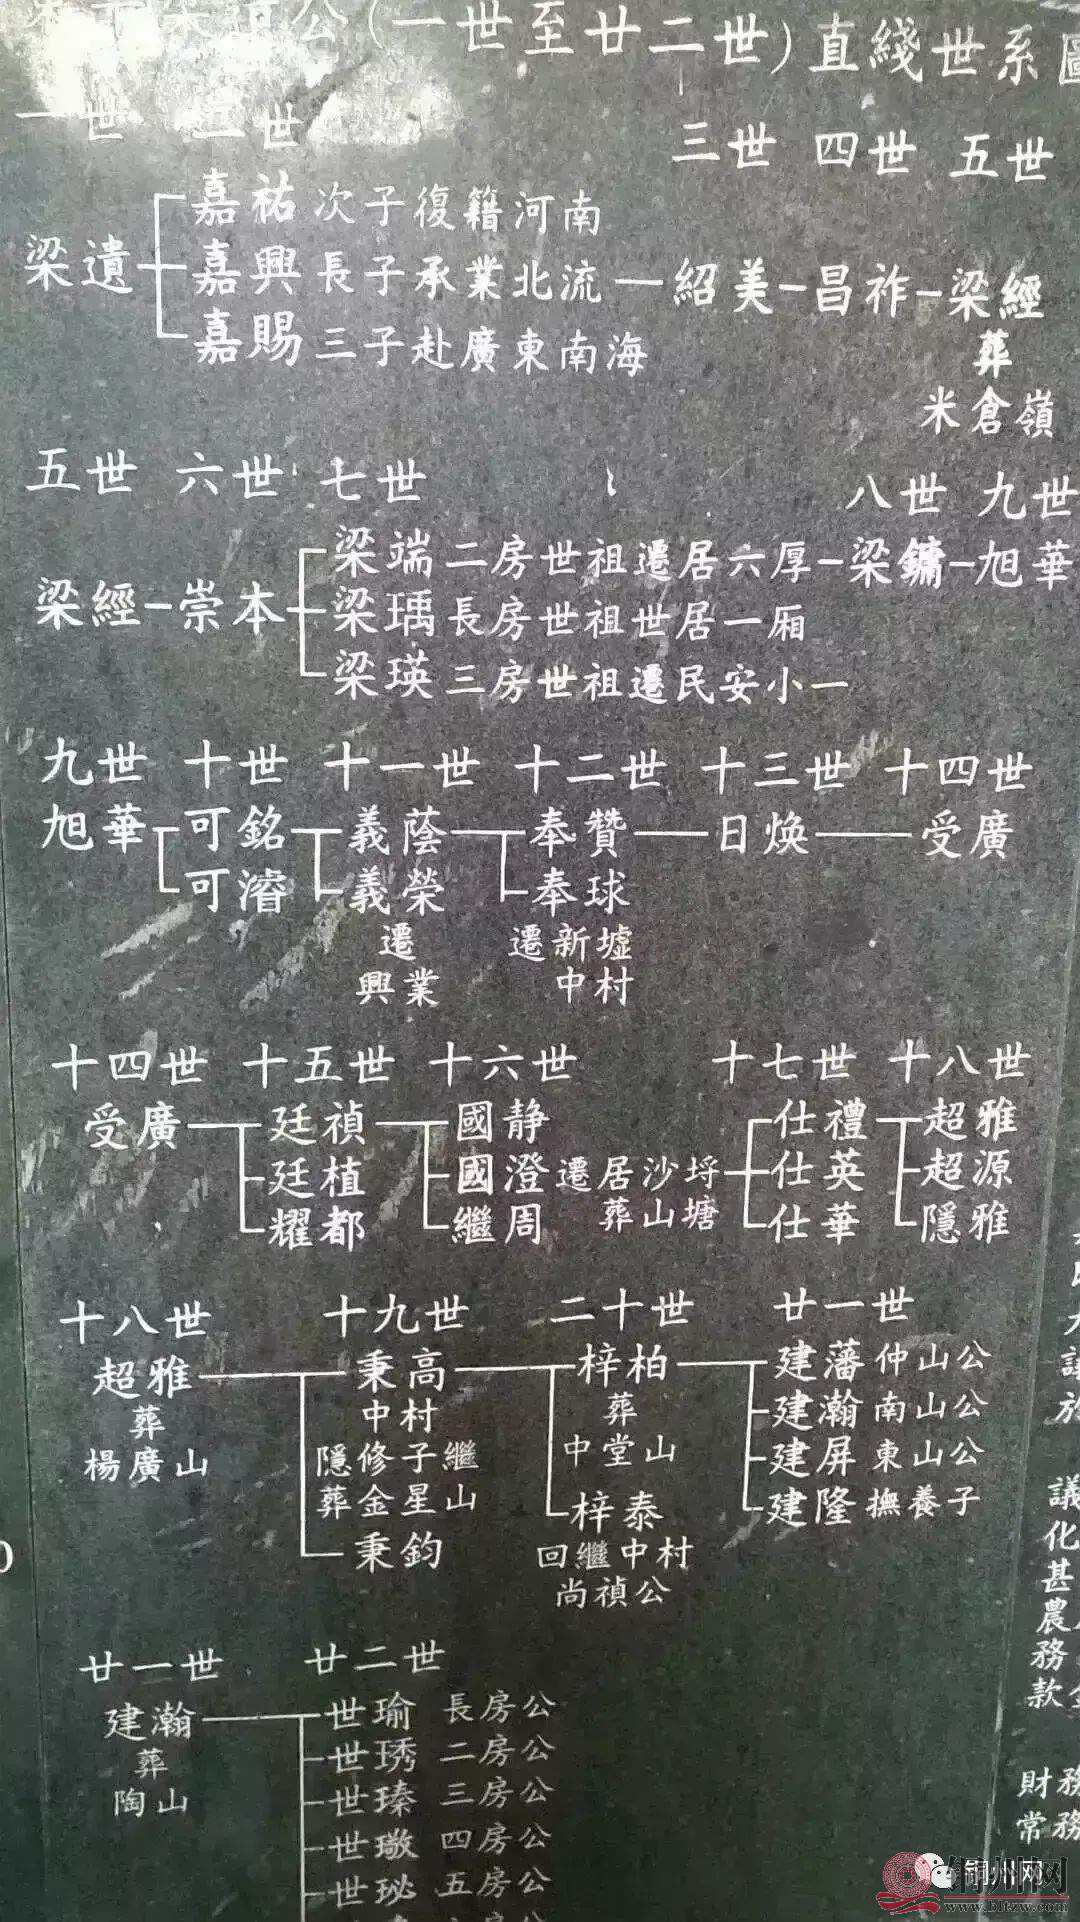 公(一世至廿二世)直綫世系圖
一世 二世 三世 四世 五世
嘉祐 次子復籍河南
梁遺 嘉興 長子承業北流 紹美 昌祚 梁經
嘉賜 三子赴廣東南海
葬
米倉嶺
五世 六世 七世 八世 九世
梁端 二房世祖遷居六厚 梁鏞 旭華
梁經 崇本 梁瑀 長房世祖世居一厢
梁瑛 三房世祖遷民安小一
九世 十世 十一世 十二世 十三世 十四世
旭華 可銘 義蔭 奉贊 日焕 受廣
可濬 義榮 奉球
遷 遷新墟
興業 中村
十四世 十五世 十六世 十七世 十八世
受廣 廷禎 國静 仕禮 超雅
廷植 國澄 遷居沙埒 仕英 超源
耀都 繼周 葬山塘 仕華 隱雅
十八世 十九世 二十世 廿一世
超雅 秉高 梓柏 建藩 仲山公
葬 中村 葬 建瀚 南山公
楊廣山 隱修子繼 中堂山 建屏 東山公
葬金星山 梓泰 建隆 撫養子
秉鈞 回繼中村
尚禎公
廿一世 廿二世
建瀚 世瑜 長房公
葬 世琇 二房公
陶山 世瑧 三房公
世璥 四房公
世珌 五房公
議
化
甚
農
務
款
財務
常務
铜州网
www.bltzw.com